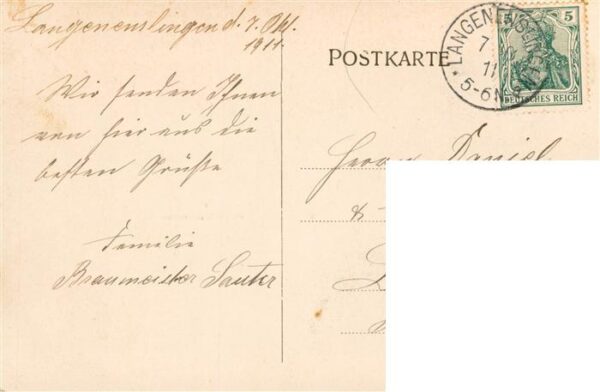 Langenenslingen d. 7. Okt.
1911.
Wir senden Ihnen
von hier aus die
besten Grüße
Familie
Braumeister Sauter
POSTKARTE
LANGENENSLINGEN
7
11
5-6N
5
DEUTSCHES REICH
Herrn Daniel